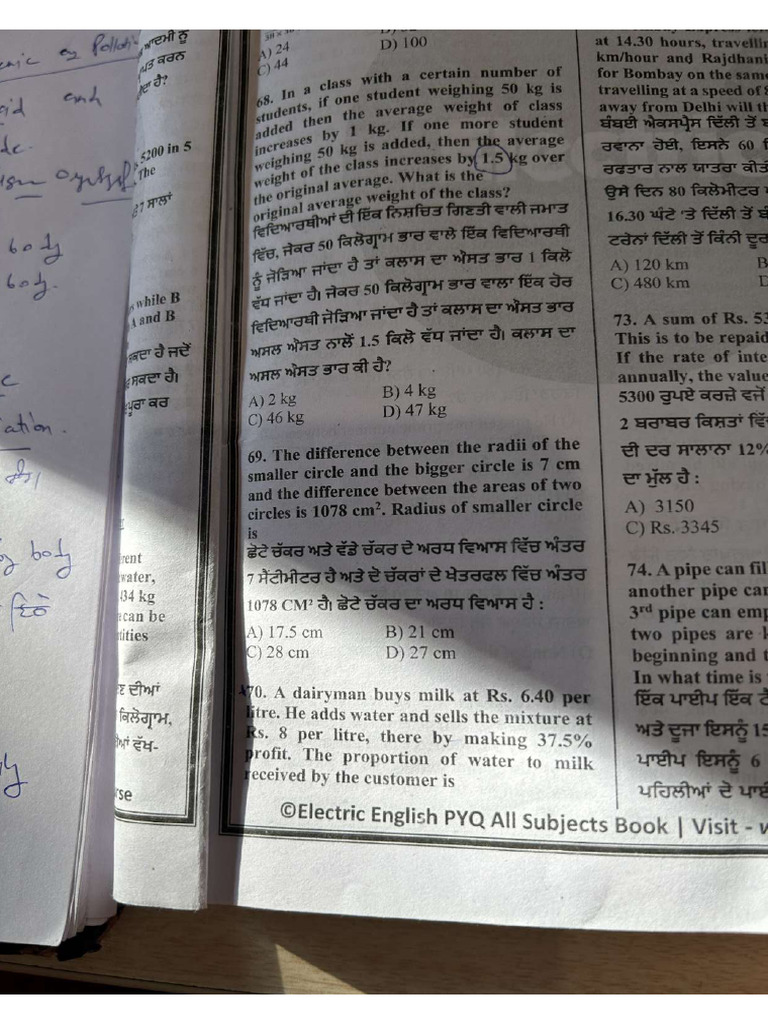 enic
Polluti
aid and
body
body.
ation.
body
ਇਠੇ
ਆਦਮੀ ਨੂ
ਕਰਨ
ਦਾ ਹੈ?
5200 in 5
The
7 ਸਾਲਾਂ
while B
A and B
ਸਕਦਾ ਹੈ ਜਦੋਂ
ਸਕਦਾ ਹੈ।
ਪੂਰਾ ਕਰ
rent
water,
434 kg
can be
tities
ਦੀਆਂ
ਕਿਲੋਗ੍ਰਾਮ,
ਆਂ ਵੱਖ-
rse
A) 24
D) 100
C) 44
68. In a class with a certain number of
students, if one student weighing 50 kg is
added then the average weight of class
increases by 1 kg. If one more student
weighing 50 kg is added, then the average
weight of the class increases by 1.5 kg over
the original average. What is the
original average weight of the class?
ਵਿਦਿਆਰਥੀਆਂ ਦੀ ਇੱਕ ਨਿਸ਼ਚਿਤ ਗਿਣਤੀ ਵਾਲੀ ਜਮਾਤ
ਵਿੱਚ, ਜੇਕਰ 50 ਕਿਲੋਗ੍ਰਾਮ ਭਾਰ ਵਾਲੇ ਇੱਕ ਵਿਦਿਆਰਥੀ
ਨੂੰ ਜੋੜਿਆ ਜਾਂਦਾ ਹੈ ਤਾਂ ਕਲਾਸ ਦਾ ਔਸਤ ਭਾਰ 1 ਕਿਲੋ
ਵੱਧ ਜਾਂਦਾ ਹੈ। ਜੇਕਰ 50 ਕਿਲੋਗ੍ਰਾਮ ਭਾਰ ਵਾਲਾ ਇੱਕ ਹੋਰ
ਵਿਦਿਆਰਥੀ ਜੋੜਿਆ ਜਾਂਦਾ ਹੈ ਤਾਂ ਕਲਾਸ ਦਾ ਔਸਤ ਭਾਰ
ਅਸਲ ਔਸਤ ਨਾਲੋਂ 1.5 ਕਿਲੋ ਵੱਧ ਜਾਂਦਾ ਹੈ। ਕਲਾਸ ਦਾ
ਅਸਲ ਔਸਤ ਭਾਰ ਕੀ ਹੈ?
A) 2 kg B) 4 kg
C) 46 kg D) 47 kg
69. The difference between the radii of the
smaller circle and the bigger circle is 7 cm
and the difference between the areas of two
circles is 1078 cm². Radius of smaller circle
is
ਛੋਟੇ ਚੱਕਰ ਅਤੇ ਵੱਡੇ ਚੱਕਰ ਦੇ ਅਰਧ ਵਿਆਸ ਵਿੱਚ ਅੰਤਰ
7 ਸੈਂਟੀਮੀਟਰ ਹੈ ਅਤੇ ਦੋ ਚੱਕਰਾਂ ਦੇ ਖੇਤਰਫਲ ਵਿੱਚ ਅੰਤਰ
1078 CM² ਹੈ। ਛੋਟੇ ਚੱਕਰ ਦਾ ਅਰਧ ਵਿਆਸ ਹੈ :
A) 17.5 cm B) 21 cm
C) 28 cm D) 27 cm
70. A dairyman buys milk at Rs. 6.40 per
litre. He adds water and sells the mixture at
Rs. 8 per litre, there by making 37.5%
profit. The proportion of water to milk
received by the customer is
at 14.30 hours, travellin
km/hour and Rajdhani
for Bombay on the same
travelling at a speed of 8
away from Delhi will th
ਬੰਬਈ ਐਕਸਪ੍ਰੈਸ ਦਿੱਲੀ ਤੋਂ ਬ
ਰਵਾਨਾ ਹੋਈ, ਇਸਨੇ 60 ਕਿ
ਰਫਤਾਰ ਨਾਲ ਯਾਤਰਾ ਕੀਤੀ
ਉਸੇ ਦਿਨ 80 ਕਿਲੋਮੀਟਰ
16.30 ਘੰਟੇ 'ਤੇ ਦਿੱਲੀ ਤੋਂ ਬੰ
ਟਰੇਨਾਂ ਦਿੱਲੀ ਤੋਂ ਕਿੰਨੀ ਦੂਰ
A) 120 km B
C) 480 km D
73. A sum of Rs. 53
This is to be repaid
If the rate of inte
annually, the value
5300 ਰੁਪਏ ਕਰਜ਼ੇ ਵਜੋਂ
2 ਬਰਾਬਰ ਕਿਸ਼ਤਾਂ ਵਿੱ
ਦੀ ਦਰ ਸਾਲਾਨਾ 12%
ਦਾ ਮੁੱਲ ਹੈ :
A) 3150
C) Rs. 3345
74. A pipe can fil
another pipe can
3rd pipe can emp
two pipes are k
beginning and t
In what time is
ਇੱਕ ਪਾਈਪ ਇੱਕ ਟੈ
ਅਤੇ ਦੂਜਾ ਇਸਨੂੰ 15
ਪਾਈਪ ਇਸਨੂੰ 6
ਪਹਿਲੀਆਂ ਦੋ ਪਾਈ
©Electric English PYQ All Subjects Book | Visit - w